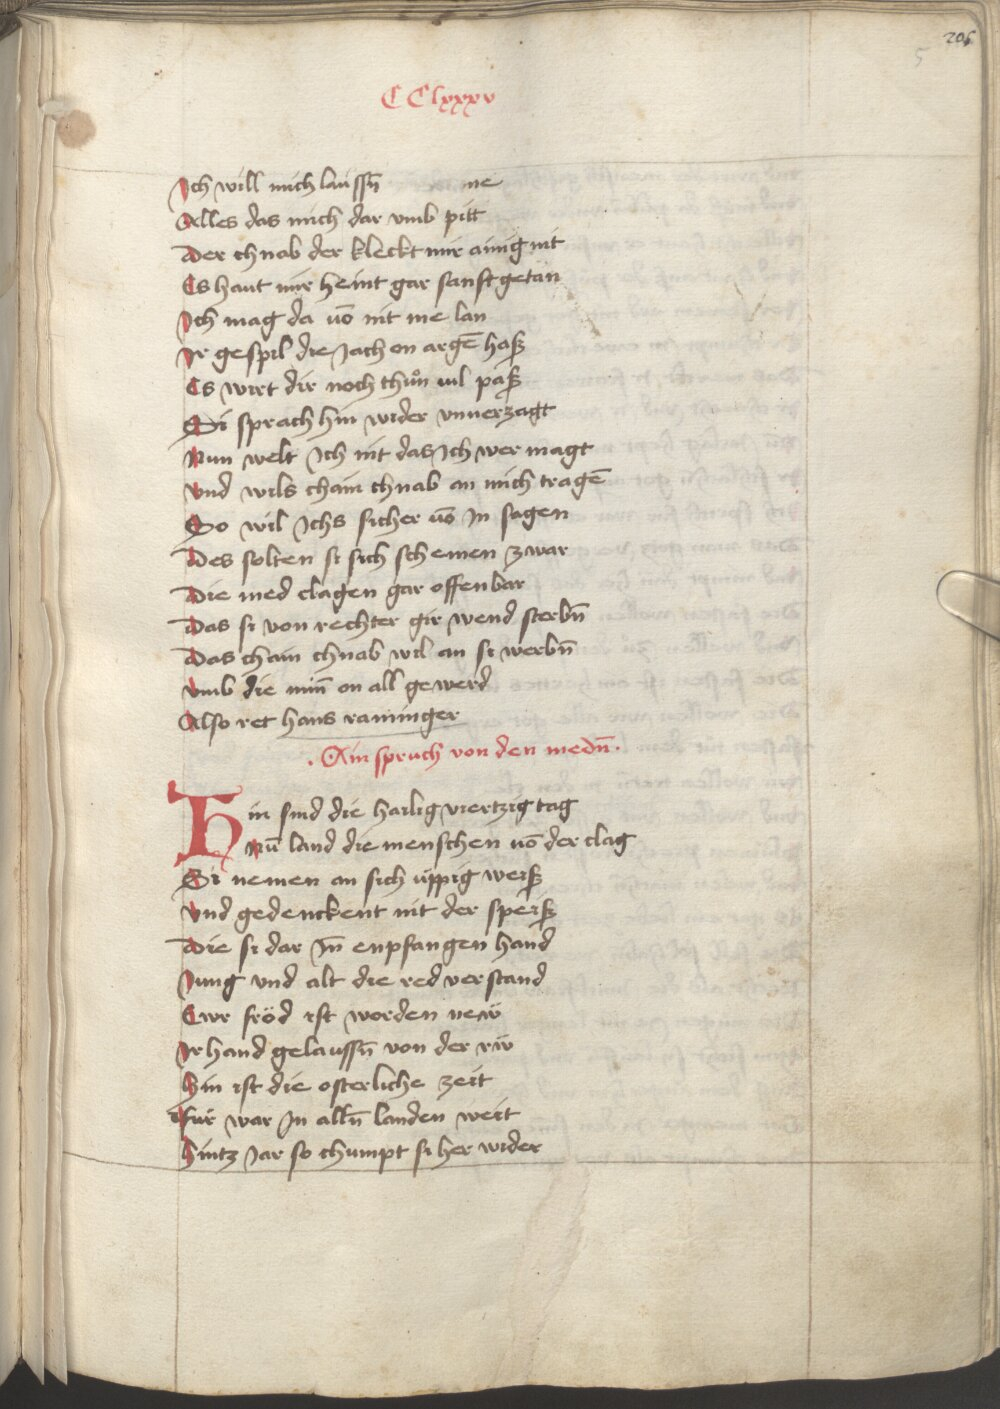 206
5
CClxxxv
Ich will mich laussn̄ me
Alles das mich dar vmb pitt
Der chnab der kleckt mir ainig nit
Es haut mir heint gar sanft getan
Ich mag da vō nit me lan
Ir gespil die Jach on argē hasz
Es wirt dir noch thůn vil pasz
Si sprach hin wider vnuerzagt
Nun welt Ich nit das Ich wer magt
Vnd wils chain chnab an mich tragē
So wil Ichs sicher vō In sagen
Des solten si sich schemen zwar
Die med clagen gar offenbar
Das si von rechter gir wend sterbn̄
Das chain chnab wil an si werbn̄
Vmb die min̄ on all gewerd
Also ret hans raminger
. Ain spruch von den medn̄ .
Hin sind die hailig viertzig tag
Nū land die menschen vō der clag
Si nemen an sich üppig weisz
Vnd gedenckent nit der speisz
Die si dar In̄ enpfangen hand
Jung vnd alt die red verstand
Ewr fröd ist worden new
Ir hand gelaussn̄ von der rẅ
Hin ist die osterliche zeit
für war In alln̄ landen weit
Hintz Jar so chumpt si her wider